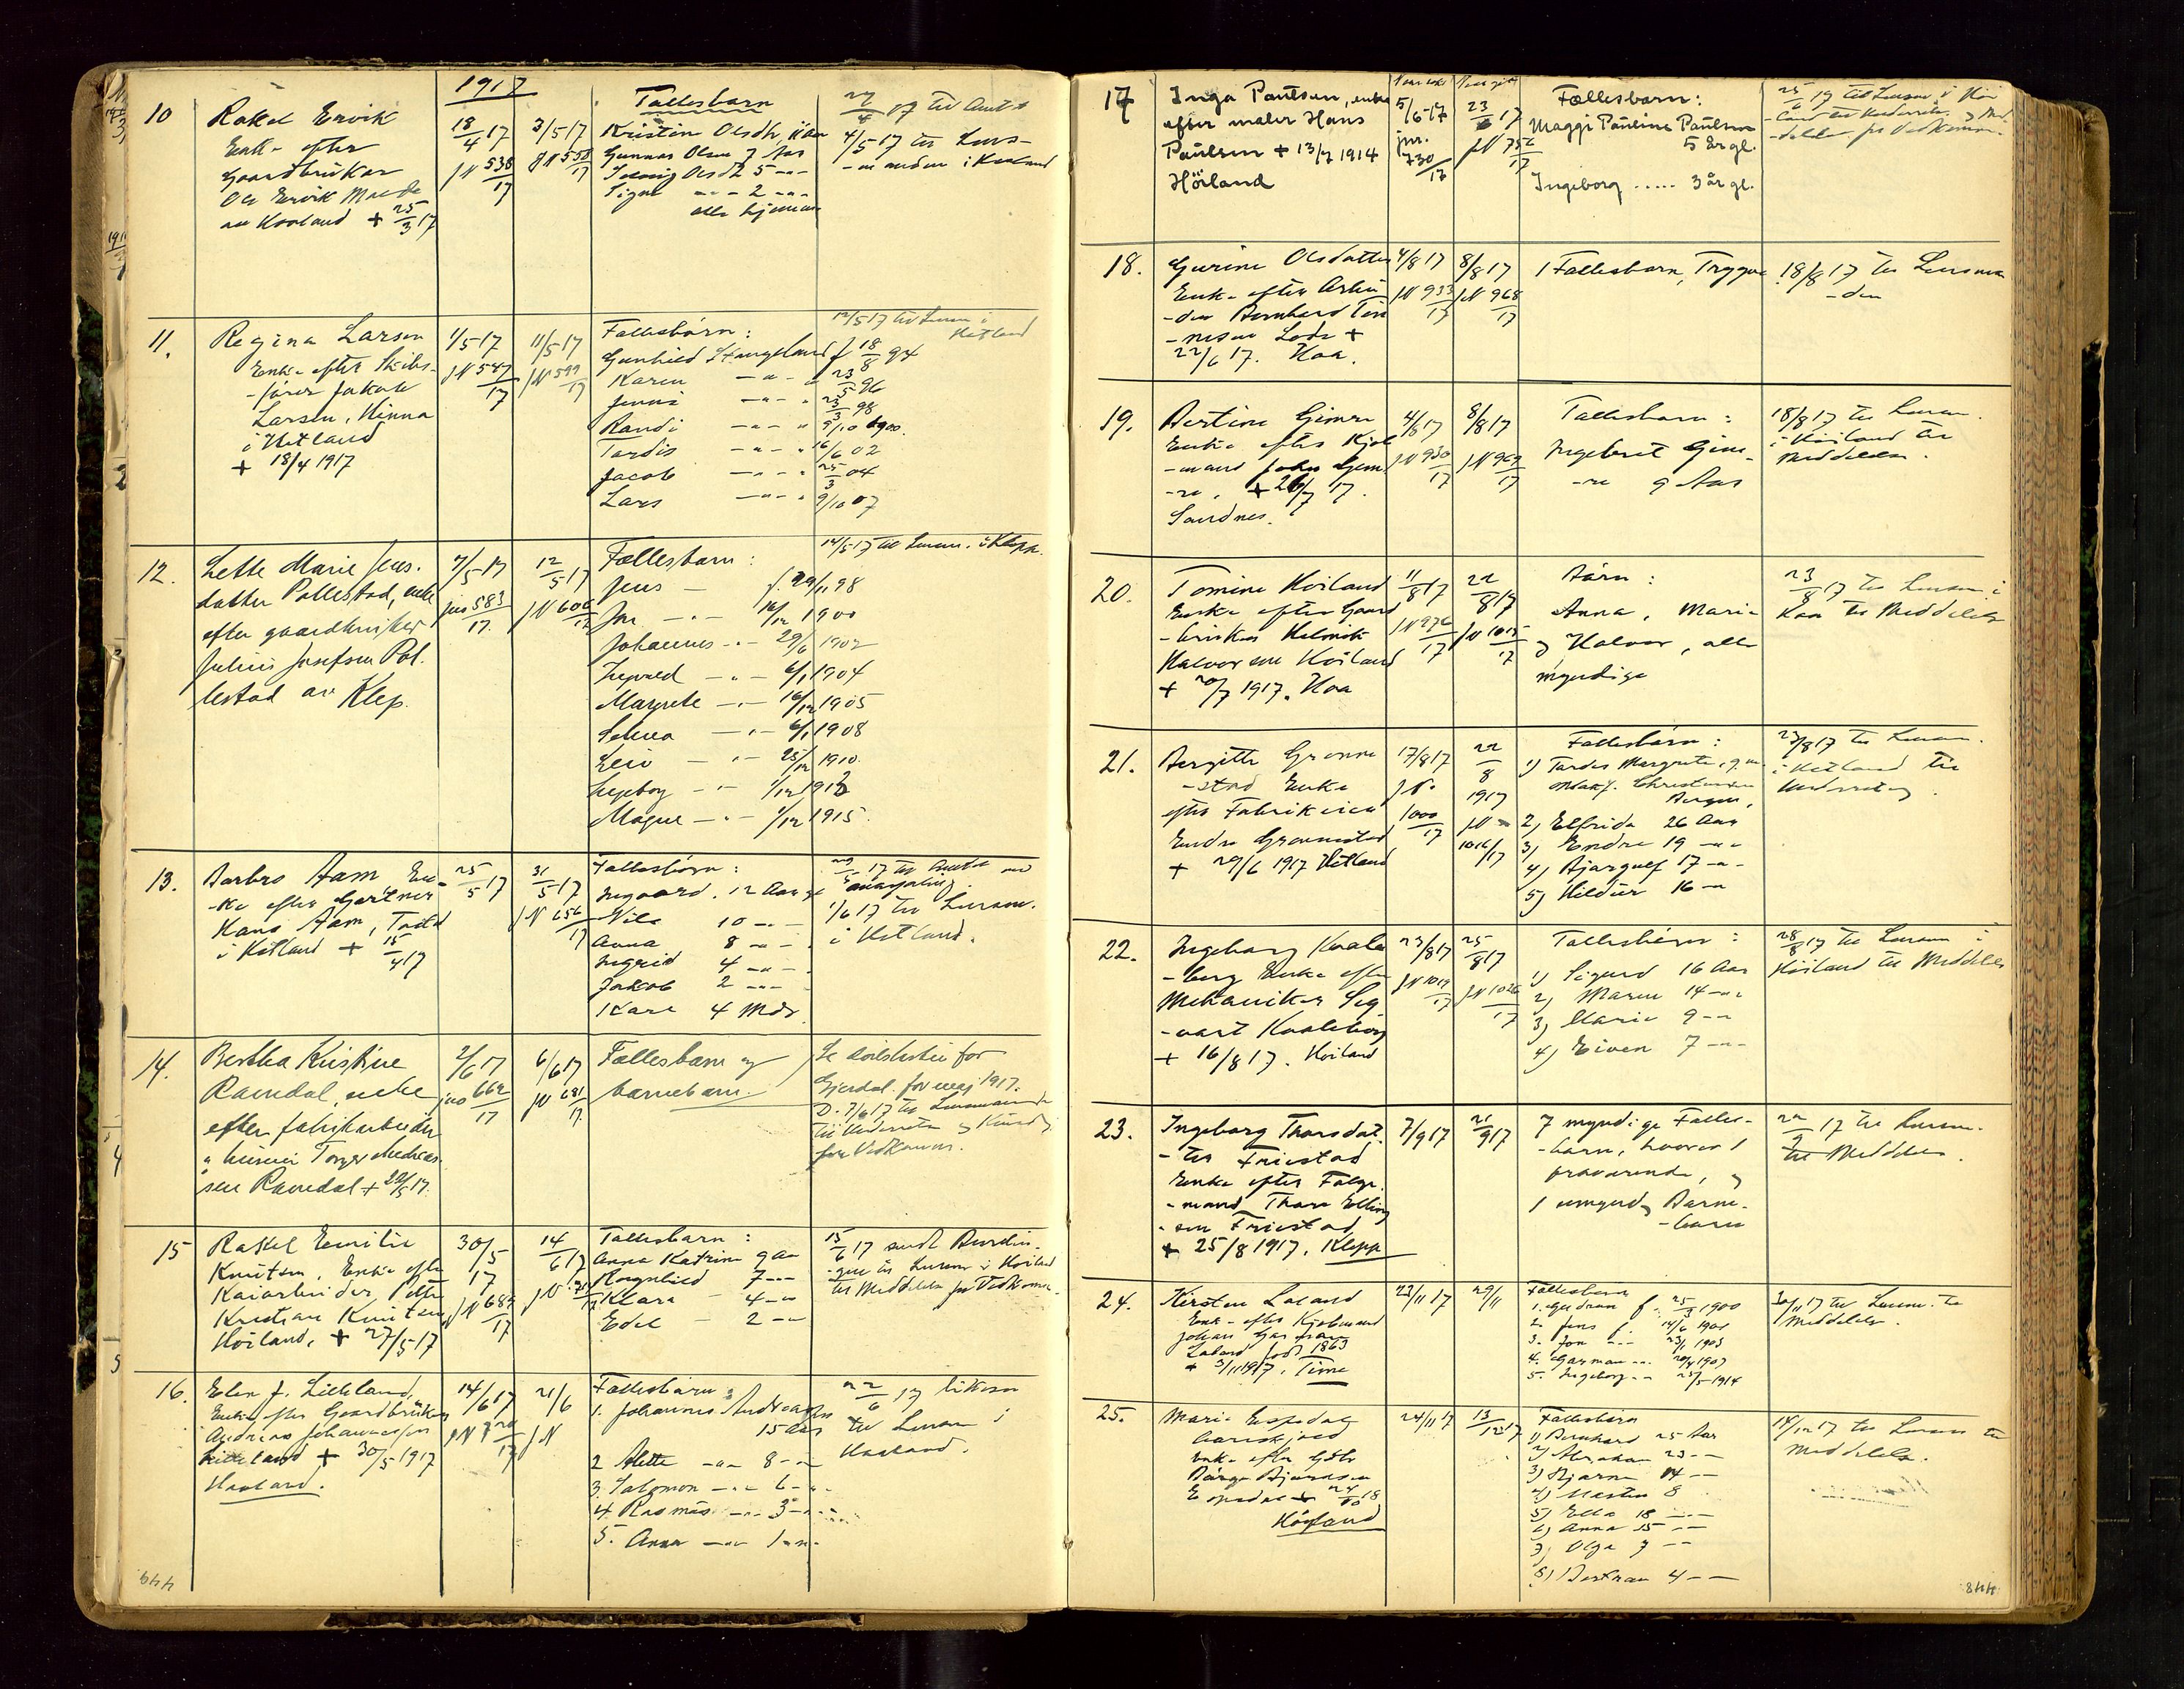 1917
10
Rakel Ervik
Enke efter
Gaardbruker
Ole Ervik
av Haaland + 25/3 17
18/4 17
JN 538/17
3/5 17
JN 558/17
Fællesbarn
Kristin Olsdtr,
Gunnar Olsen 7 Aar
Solveig Olsdtr 5 -"-
Signe -"- 2 -"-
alle hjemme
27/4 17 til Amtet
4/5 17 til Lens-
-manden i Haaland
11.
Regina Larsen
Enke efter Skibs-
-fører Jakob
Larsen, Hinna
i Hetland
+ 18/4 1917
1/5 17
JN 547/17
11/5 17
JN 599/17
Fællesbørn:
Gunhild Stangeland f 18/8 94
Karen -"- " 23/5 96
Jenni -"- " 23/3 98
Randi -"- " 9/10 1900.
Tordis -"- " 16/6 02
Jacob -"- " 25/3 04
Lars -"- " 9/10 07
12/5 17 til Lensm. i
Hetland
12.
Lette Marie Jens.
datter Pollestad, enke
efter gaardbruker
Julius Josefsen Pol.
lestad av Klep.
7/5 17
jno 583/17.
12/5 17
JN 606/17
Fællesbarn:
Jens - f. 29/11 98
Jon -"- 16/12 1900
Johannes -"- 29/6 1902
Ingvald -"- 6/1 1904
Margrete -"- 16/12 1905
Selma -"- 6/1 1908
Leiv -"- 25/12 1910.
Ingeborg -"- 1/12 1913
Magne -"- 1/12 1915.
14/5 17 til Lensm. i Klepp.
13.
Barbro Aam En-
-ke efter Gartner
Hans Aam, Tasta
i Hetland + 15/4 17
25/5 17
31/5 17
JN 656/17
Fællesbørn:
Ingvard. 12 Aar gl
Nils 10 -"-
Anna 8 -"-
Ingrid 4 -"-
Jakob 2 -"-
Kare 4 Mdr.
29/5 17 til Amtet
1/6 17 til Lensm.
i Hetland.
14.
Bertha Kristine
Ramdal, enke
efter fabrikarbeider
Torger Andreas-
sen Ramdal + 22/5 17.
2/6 17
jno 662/17
6/6 17
JN 681/17.
Fællesbarn og
barnebarn.
Se for
Gjesdal for maj 1917.
D. 7/6 17 til Lensmanden
til Underretn. og
for Vedkomm.
15
Rakel Emilie
Knutsen, Enke efter
Kaiarbeider Petter
Kristian Knutsen
Høiland, + 27/5 17
30/5 17
JN 687/17
14/6 17
Fællesbarn:
Anna Katrine 9 Aar
Ragnhild 7 -"-
Klara 4 -"-
Edel 2 -"-
15/6 17 sendt
til Lensm. i Høiland
til Meddelelse for Vedkomm.
16.
Elen J. Lilleland,
Enke efter Gaardbruker
Andreas Johannessen
Lilleland + 30/5 1917
Haaland.
14/6 17
21/6
JN
Fællesbørn:
1. Johannes Andreassen
15 Aar
2 Mette -"- 8 -"-
3. Salomon -"- 6 -"-
4. Rasmus -"- 3 -"-
5. Anna -"- 1 -"-
22/6 17
til Lensm i
Haaland.
449
17
Inga Paulsen, enke
efter maler Hans
Paulsen + 13/7 1914
Höiland
5/6-17
jnr.
730/17
23/6 17
JN 752/17
Fællesbarn:
Maggi Pauline Paulsen
5 år gl.
Ingeborg ..... 3 år gl.
25/6 17 til Lensm i Høi
-land til Underretn. og Med
-delelse for Vedkomm.
18.
Gurine Olsdatter
Enke efter Arbei
-der Bernhard Tøn
-nesen Lode +
22/6 17. Haa.
4/8 17
JN 933/17
8/8 17
JN 968/17
1 Fællesbarn, Trygve
18/8 17 til Lensman
-den
19.
Bertine Gimre
Enke efter Kjøb
-mand John Gim
-re, + 26/7 17.
Sandnes.
4/8 17
JN 930/17
8/8 17
JN 969/17
Fællesbarn:
Ingebret Gim-
-re 9 Aar
18/8 17 til Lensm.
i Høiland til
Meddelelse.
20.
Tomine Høiland
Enke efter Gaard
-bruker Helmik
Halvorsen Høiland
+ 20/7 1917. Haa
11/8 17
JN 976/17
22/8 17
JN 1015/17
Børn:
Anna, Marie
og Halvor, alle
myndige
23/8 17 til Lensm. i
Haa til Meddelelse
21.
Bergitte Grønne
-stad Enke
efter Fabrikeier
Endre Grønnestad
+ 29/6 1917 Hetland
17/8 17
JN.
1000/17
22/8
1917
JN
1016/17
Fællesbørn:
1) Tordis Margrete, g. m.
Christensen
Bergen,
2) Elfrida 26 Aar
3) Endre 19 -"-
4) Bjargulf 17 -"-
5) Hildur 16 -"-
23/8 17 til Lensm.
i Hetland til
Underretning.
22.
Ingeborg Kvale
-berg Enke efter
Mekaniker Sig
-vart Kvaleberg
+ 16/8 17. Høiland
23/8 17
JN 1019/17
25/8 17
JN 1026/17
Fællesbørn:
1) Sigurd 16 Aar
2) Maren 14 -"-
3) Marie 9 -"-
4) Eiven 7 -"-
28/8 17 til Lensm i
Høiland til Meddelelse
23.
Ingeborg Thorsdat.
-ter Friestad
Enke efter Følge.
-mand Thore Elling
-sen Friestad
+ 25/8 1917. Klepp
7/9 17
21/9 17
7 myndige Fælles-
-barn, hvorav 1
fraværende, og
1 umyndig Barne-
-barn
22/9 17 til Lensm.
til Meddelelse.
24.
Kirsten Laland
Enke efter Kjøbmand
Johan Garman
Laland født 1863
+ 3/11 1917, Time
23/11 17
29/11
Fællesbarn
1. Gudrun f. 25/3 1900
2. Jens -"- 14/6 1901
3. Jon -"- 23/1 1903
4. Garman -"- 20/4 1907
5. Ingeborg -"- 25/5 1914
30/11 17 til Lensm. til
Meddelelse.
25.
Marie Espedal
enke efter
Børge Bjørnsen
Espedal +
Høiland
24/11 17
13/12 17
Fællesbørn
1) Bernhard 25 Aar
2) Abraham 23 -"-
3) Bjarne 14 -"-
4) Marten 8
5) Ella 18 -"-
6) Anna 15 -"-
7) Olga 7 -"-
8) Bertran 4 -"-
14/12 17 til Lensm til
Meddelelse.
448